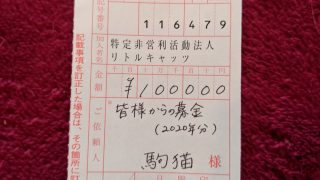 記号番号
116479
加入者名
特定非営利活動法人
リトルキャッツ
金額
千百十万千百十円
¥100000
ご依頼人
皆様からの募金
(2020年分)
駒猫 様
記載事項を訂正した場合は、その箇所に訂